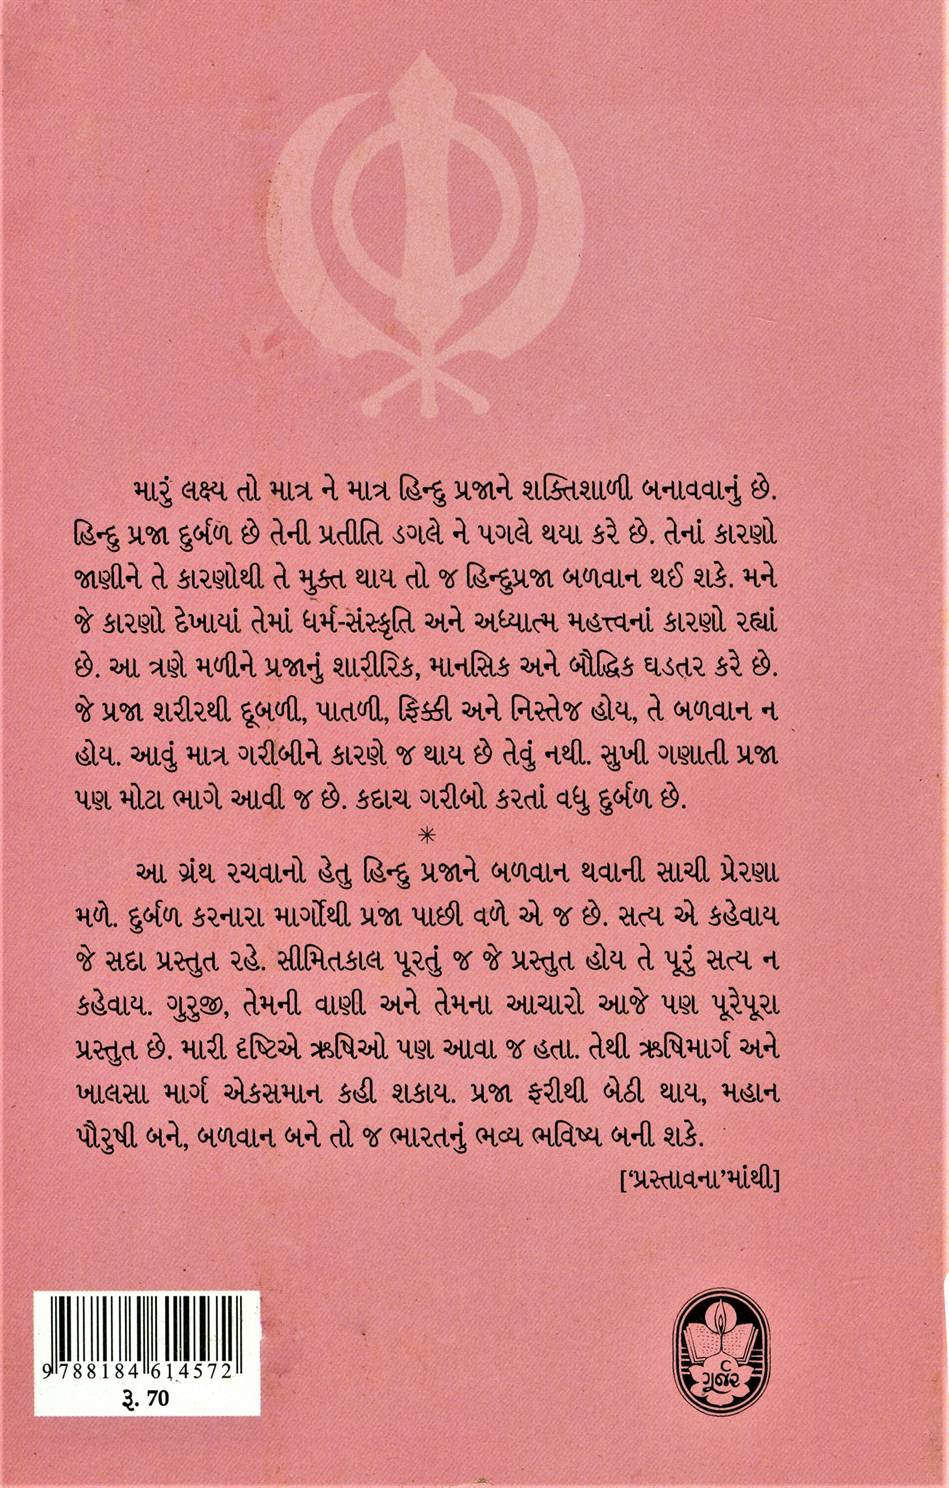 મારું લક્ષ્ય તો માત્ર ને માત્ર હિન્દુ પ્રજાને શક્તિશાળી બનાવવાનું છે.
હિન્દુ પ્રજા દુર્બળ છે તેની પ્રતીતિ ડગલે ને પગલે થયા કરે છે. તેનાં કારણો
જાણીને તે કારણોથી તે મુક્ત થાય તો જ હિન્દુપ્રજા બળવાન થઈ શકે. મને
જે કારણો દેખાયાં તેમાં ધર્મ-સંસ્કૃતિ અને અધ્યાત્મ મહત્ત્વનાં કારણો રહ્યાં
છે. આ ત્રણે મળીને પ્રજાનું શારીરિક, માનસિક અને બૌદ્ધિક ઘડતર કરે છે.
જે પ્રજા શરીરથી દૂબળી, પાતળી, ફિક્કી અને નિસ્તેજ હોય, તે બળવાન ન
હોય. આવું માત્ર ગરીબીને કારણે જ થાય છે તેવું નથી. સુખી ગણાતી પ્રજા
પણ મોટા ભાગે આવી જ છે. કદાચ ગરીબો કરતાં વધુ દુર્બળ છે.
*
આ ગ્રંથ રચવાનો હેતુ હિન્દુ પ્રજાને બળવાન થવાની સાચી પ્રેરણા
મળે. દુર્બળ કરનારા માર્ગોથી પ્રજા પાછી વળે એ જ છે. સત્ય એ કહેવાય
જે સદા પ્રસ્તુત રહે. સીમિતકાલ પૂરતું જ જે પ્રસ્તુત હોય તે પૂરું સત્ય ન
કહેવાય. ગુરુજી, તેમની વાણી અને તેમના આચારો આજે પણ પૂરેપૂરા
પ્રસ્તુત છે. મારી દૃષ્ટિએ ઋષિઓ પણ આવા જ હતા. તેથી ઋષિમાર્ગ અને
ખાલસા માર્ગ એકસમાન કહી શકાય. પ્રજા ફરીથી બેઠી થાય, મહાન
પૌરુષી બને, બળવાન બને તો જ ભારતનું ભવ્ય ભવિષ્ય બની શકે.
['પ્રસ્તાવના'માંથી]
9 788184 614572
રૂ. 70
ગૂર્જર